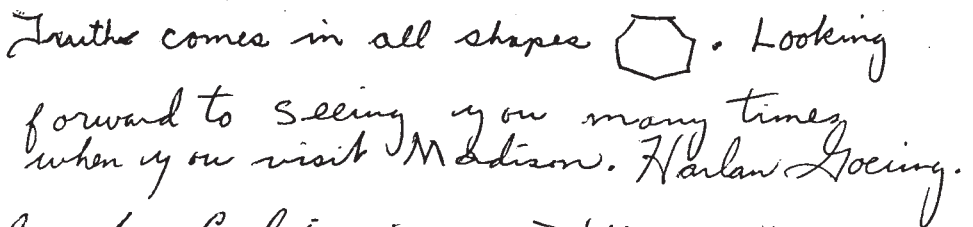 Truth comes in all shapes . Looking
forward to seeing you many times
when you visit Madison. Harlan Goering.